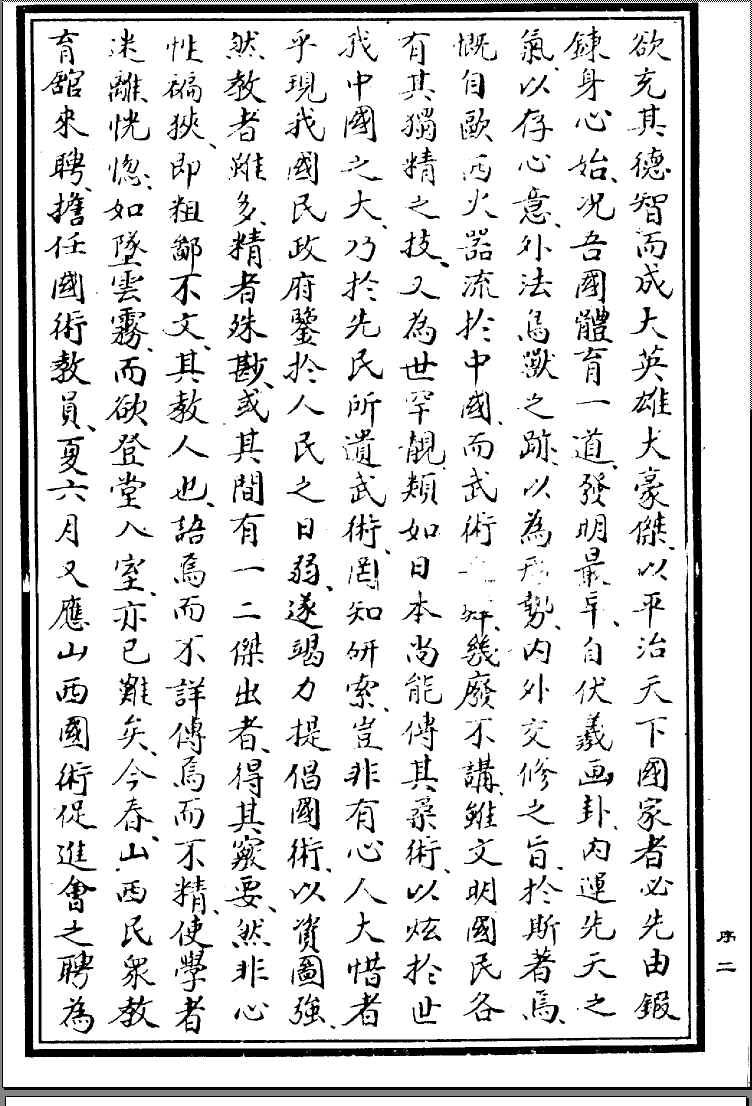 欲充其德智而成大英雄大豪傑、以平治天下國家者必先由鍜
鍊身心始、况吾國體育一道、發明最早、自伏羲画卦、內運先天之
氣、以存心意、外法鳥獸之跡、以為形勢、內外交修之旨、於斯著焉、
慨自歐西火器流於中國、而武術 幾廢不講、雖文明國民各
有其獨精之技、又為世罕覯、類如日本尚能傳其柔術、以炫於世
我中國之大、乃於先民所遺武術、罔知研索、豈非有心人大惜者
乎現我國民政府鑒於人民之日弱、遂竭力提倡國術、以資圖強、
然教者雖多、精者殊尠、或其間有一二傑出者、得其竅要、然非心
性褊狹、即粗鄙不文、其教人也、語焉而不詳傳焉而不精、使學者
迷離恍惚、如墜雲霧、而欲登堂入室、亦已難矣、今春、山西民衆教
育舘來聘、擔任國術教員、夏六月又應山西國術促進會之聘為
序二